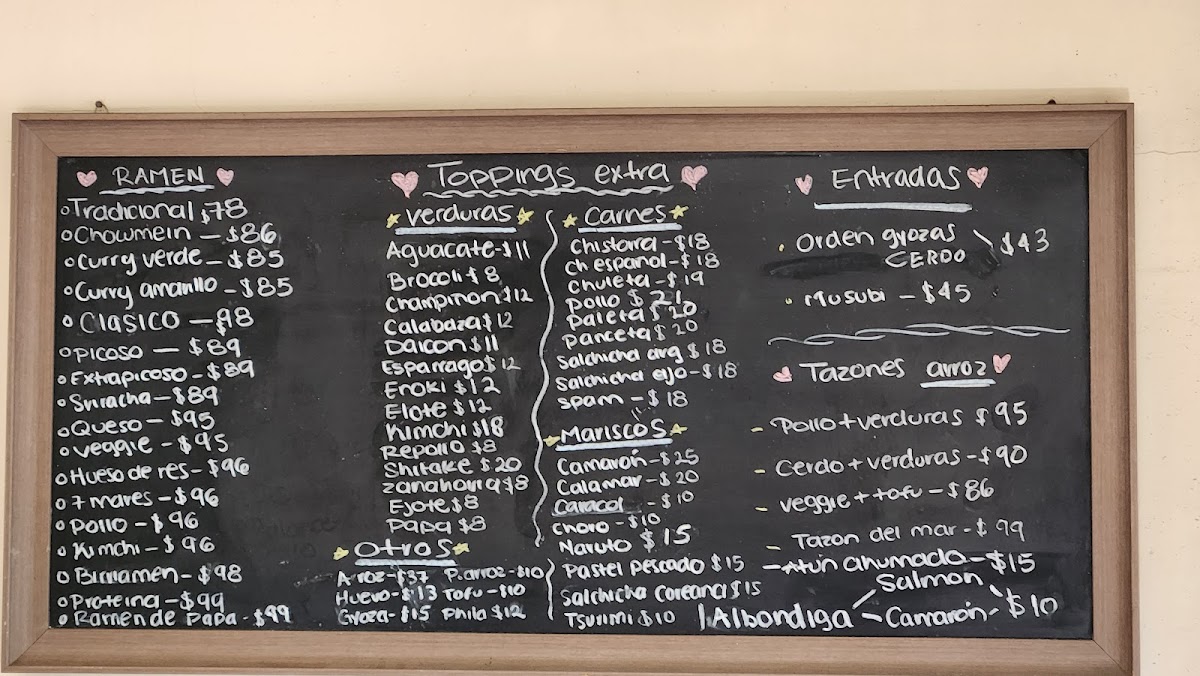 RAMEN
Tradicional $78
Chowmein - $86
Curry verde - $85
Curry amarillo - $85
Clasico - 98
Picoso - $89
Extrapicoso - $89
Sriracha - $89
Queso - $95
Veggie - $95
Hueso de res - $96
7 mares - $96
Pollo - $96
Kimchi - $96
Birriamen - $98
Proteina - $99
Ramen de papa - $99
Toppings extra
Verduras
Aguacate - $11
Brocoli $8
Champiñon $12
Calabaza $12
Daicon $11
Esparrago $12
Enoki $12
Elote $12
Kimchi $18
Repollo $8
Shitake $20
Zanahoria $8
Ejote $8
Papa $8
Otros
Arroz - $37 P. arroz - $10
Huevo - $13 Tofu - $10
Gyoza - $15 Phila $12
Carnes
Chistorra - $18
Ch español - $18
Chuleta - $19
Pollo $21
Paleta $20
Panceta $20
Salchicha arg $18
Salchicha ajo - $18
Spam - $18
Mariscos
Camarón - $25
Calamar - $20
Caracol - $10
Choro - $10
Naruto $15
Pastel pescado $15
Salchicha coreana $15
Tsurimi $10
Entradas
Orden gyozas $43
CERDO
Musubi - $45
Tazones arroz
Pollo + verduras $95
Cerdo + verduras - $90
Veggie + tofu - $86
Tazon del mar - $99
Atún ahumado - $15
Salmon
Albondiga - Camarón - $10